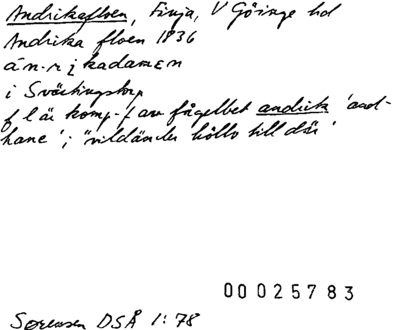 Andrikafloen, Finja, V Göinge hd
Andrika floen 1836
i Svärtingstorp
f l är komp-f av fågelbet andrik 'and-
hane'; "vildänder höllo till där'
00025783
Sørensen DSÅ 1:78